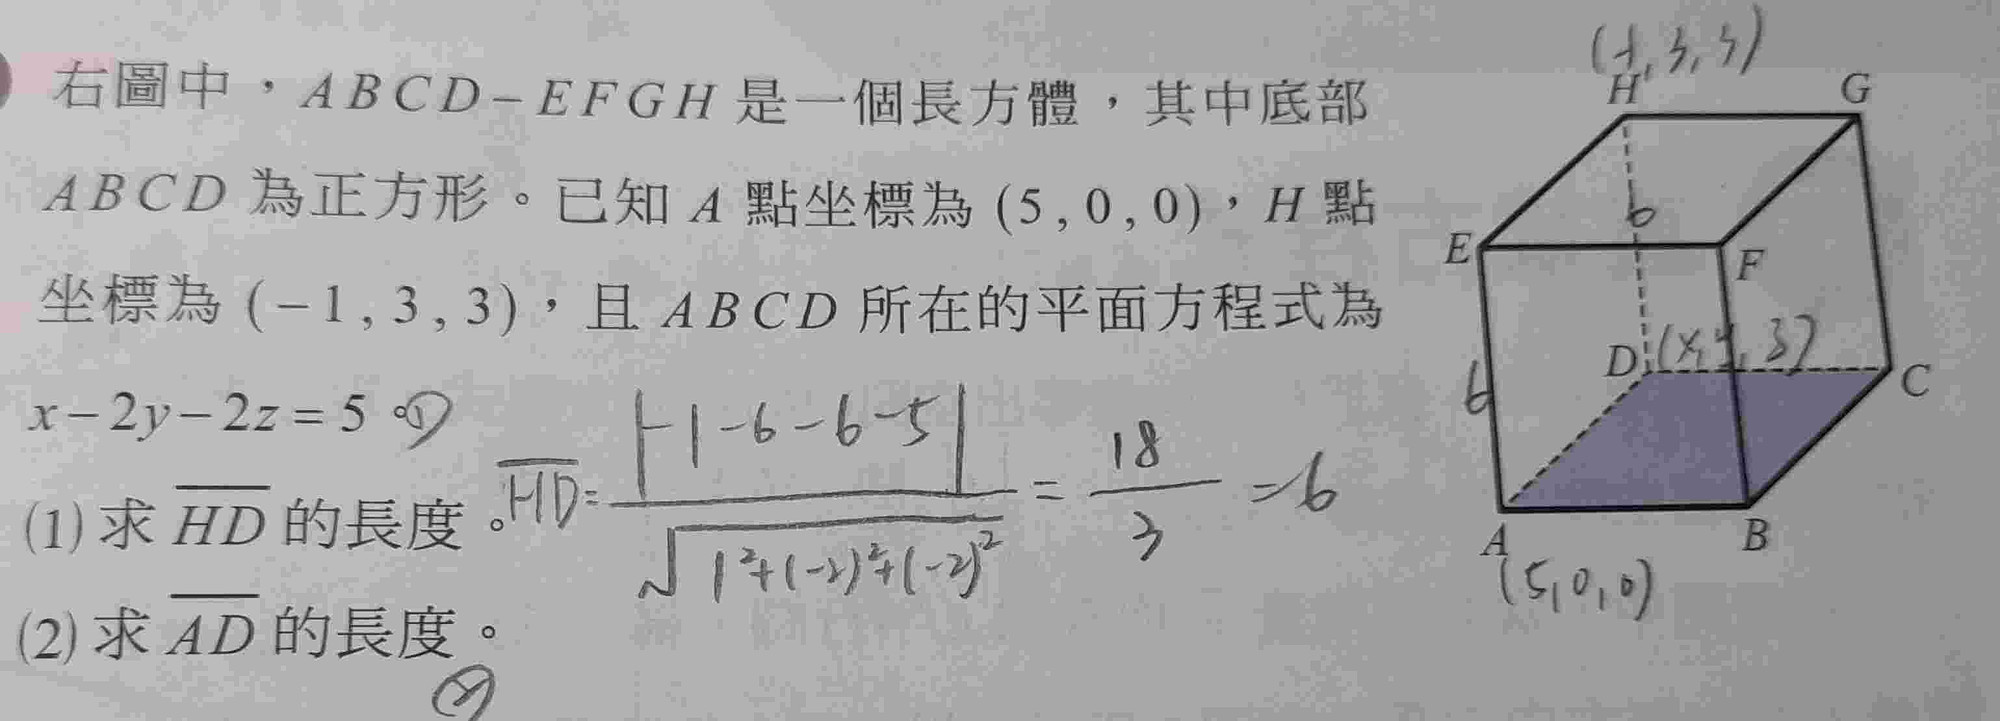 右圖中，ABCD－EFGH 是一個長方體，其中底部
ABCD 為正方形。已知 A 點坐標為 (5 , 0 , 0)，H 點
坐標為 (－1 , 3 , 3)，且 ABCD 所在的平面方程式為
x－2y－2z＝5。
(1) 求 \overline{HD} 的長度。
(1) \overline{HD} = \frac{|-1-6-6-5|}{\sqrt{1²+(-2)²+(-2)²}} = \frac{18}{3} = 6
(2) 求 \overline{AD} 的長度。
(2)
(-1, 3, 3)
H G
6
E F
D (x, y, z)
C
6
A B
(5, 0, 0)